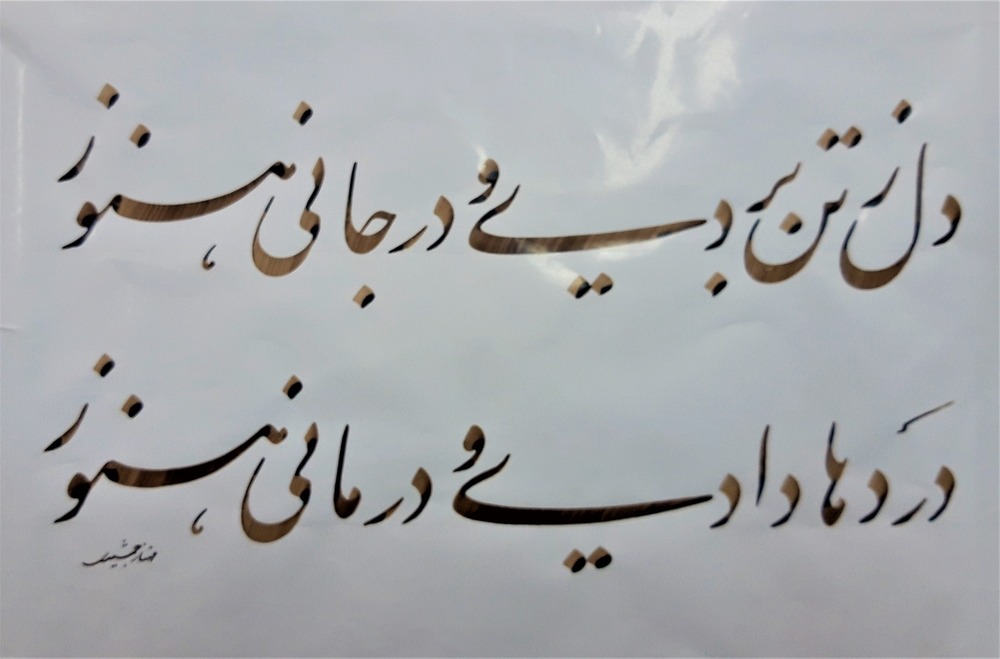 دل ز تن بردیی و در جانی هنوز
دردها دادیی و درمانی هنوز